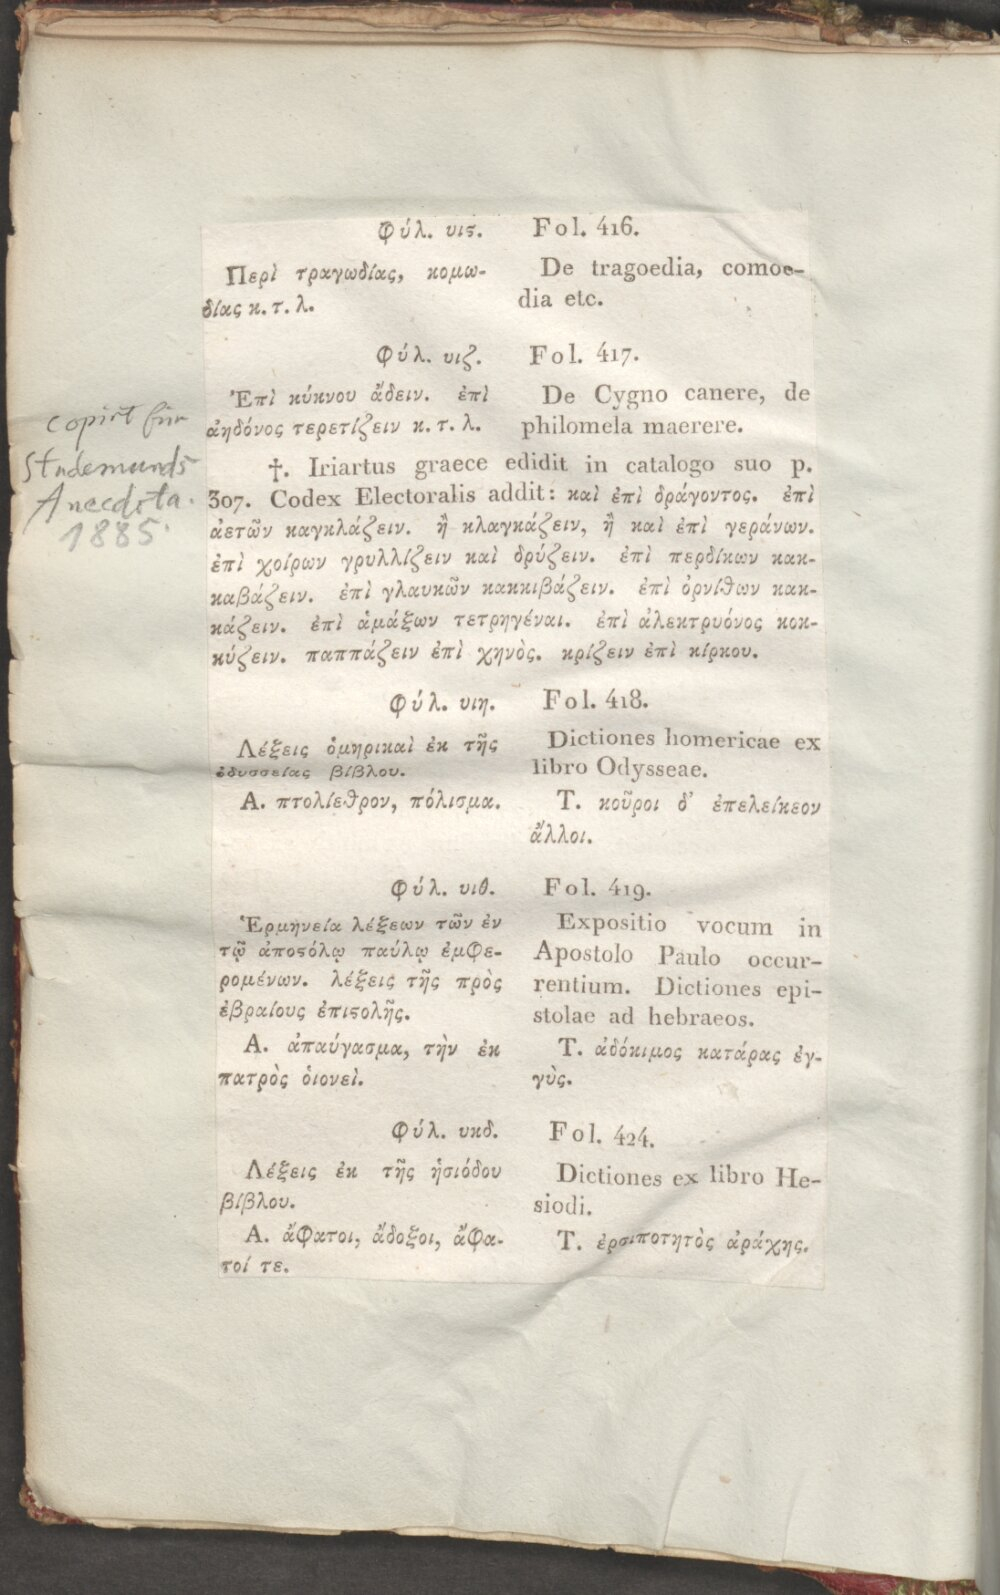 Φύλ. υιϛ.
Περὶ τραγωδίας, κομω-
δίας κ. τ. λ.
Fol. 416.
De tragoedia, comoe-
dia etc.
Φύλ. υιζ.
Ἐπὶ κύκνου ἄδειν. ἐπὶ
ἀηδόνος τερετίζειν κ. τ. λ.
Fol. 417.
De Cygno canere, de
philomela maerere.
copirt für
Studemunds
Anecdota.
1885.
†. Iriartus graece edidit in catalogo suo p.
307. Codex Electoralis addit: καὶ ἐπὶ δράγοντος. ἐπὶ
ἀετῶν καγκλάζειν. ἢ κλαγκάζειν, ἢ καὶ ἐπὶ γεράνων.
ἐπὶ χοίρων γρυλλίζειν καὶ δρύζειν. ἐπὶ περδίκων κακ-
καβάζειν. ἐπὶ γλαυκῶν κακκιβάζειν. ἐπὶ ὀρνίθων κακ-
κάζειν. ἐπὶ ἁμάξων τετρηγέναι. ἐπὶ ἀλεκτρυόνος κοκ-
κύζειν. παππάζειν ἐπὶ χηνὸς. κρίζειν ἐπὶ κίρκου.
Φύλ. υιη.
Λέξεις ὁμηρικαὶ ἐκ τῆς
ὀδυσσείας βίβλου.
Α. πτολίεθρον, πόλισμα.
Fol. 418.
Dictiones homericae ex
libro Odysseae.
Τ. κοῦροι δ’ ἐπελείκεον
ἄλλοι.
Φύλ. υιθ.
Ἑρμηνεία λέξεων τῶν ἐν
τῷ ἀποϛόλῳ παύλῳ ἐμφε-
ρομένων. λέξεις τῆς πρὸς
ἑβραίους ἐπιϛολῆς.
Α. ἀπαύγασμα, τὴν ἐκ
πατρὸς ὁιονεὶ.
Fol. 419.
Expositio vocum in
Apostolo Paulo occur-
rentium. Dictiones epi-
stolae ad hebraeos.
Τ. ἀδόκιμος κατάρας ἐγ-
γὺς.
Φύλ. υκδ.
Λέξεις ἐκ τῆς ἡσιόδου
βίβλου.
Α. ἄφατοι, ἄδοξοι, ἄφα-
τοί τε.
Fol. 424.
Dictiones ex libro He-
siodi.
Τ. ἐρσιποτητὸς ἀράχης.